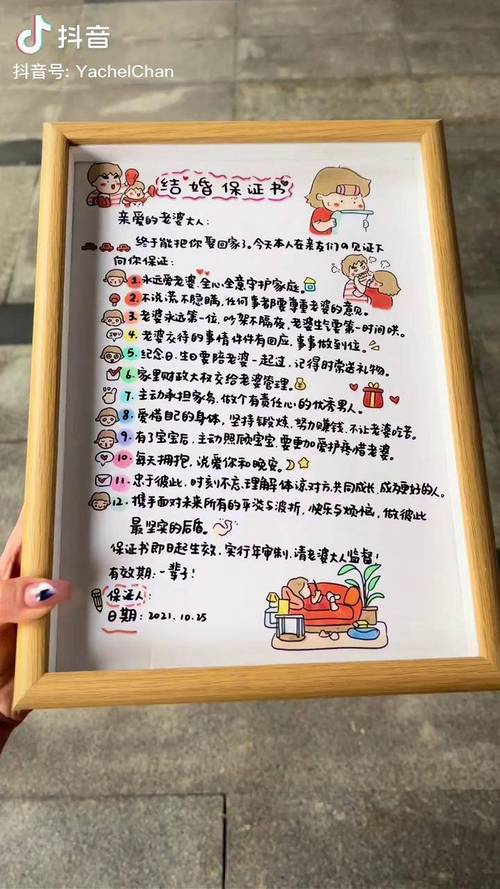 抖音
抖音号: YachelChan
结婚保证书
亲爱的老婆大人:
终于能把你娶回家了。今天本人在亲友们の见证下
向你保证:
1.永远爱老婆,全心全意守护家庭。
2.不说谎不隐瞒,任何事都要尊重老婆的意见。
3.老婆永远第一位,吵架不隔夜,老婆生气要第一时间哄。
4.老婆交待的事情件件有回应,事事做到位。
5.纪念日,生日要陪老婆一起过,记得时常送礼物。
6.家里财政大权交给老婆管理。
7.主动承担家务,做个有责任心的优秀男人。
8.爱惜自己的身体,坚持锻炼,努力赚钱,不让老婆吃苦。
9.有了宝宝后,主动照顾宝宝,要更加爱护疼惜老婆。
10.每天拥抱,说爱你和晚安。
11.忠于彼此,时刻不忘,理解体谅对方,共同成长,成为更好的人。
12.携手面对未来所有的平淡与波折,快乐与烦恼,做彼此
最坚实的后盾。
保证书即日起生效,实行年审制,请老婆大人监督!
有效期:一辈子!
保证人:
日期:2021.10.25